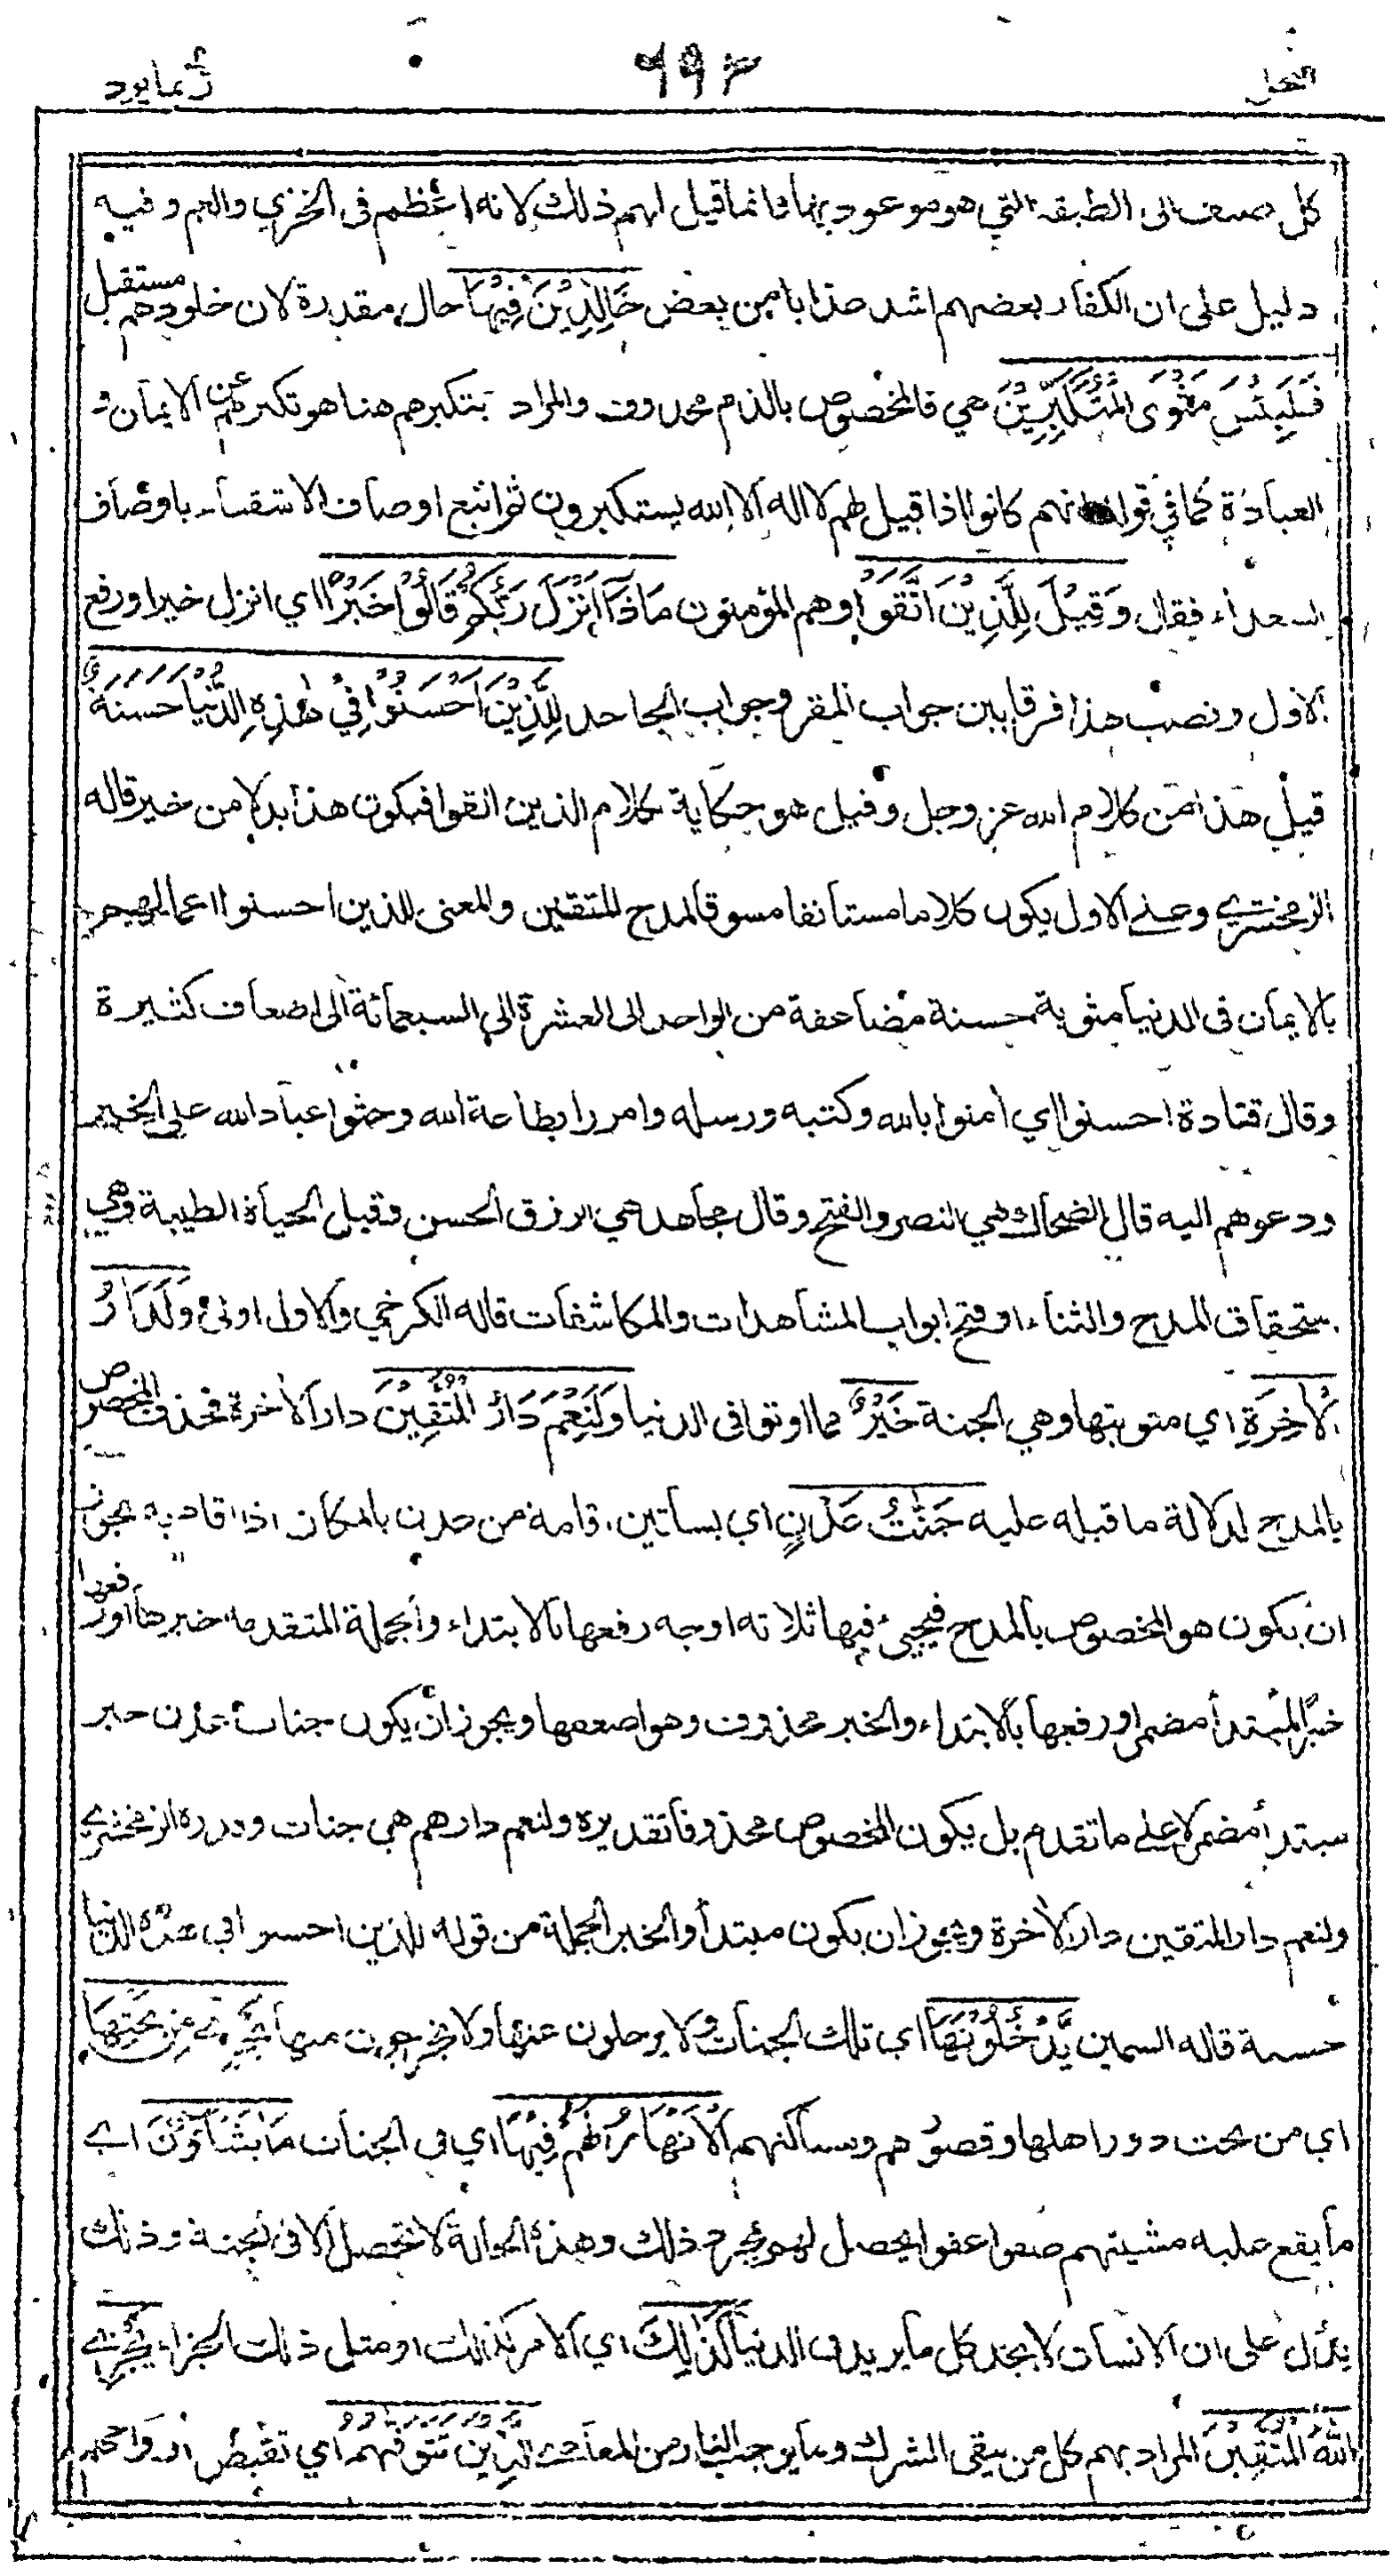 النحل ٦٩٣ ربما يود
كل صنف الى الطبقة التي هو موعود بها وانما قيل لهم ذلك لانه اعظم في الخزي والغم وفيه
دليل على ان الكفار بعضهم اشد عذابا من بعض خَالِدِيْنَ فِيْهَا حال مقدرة لان خلودهم مستقبل
فَلَبِئْسَ مَثْوَى الْمُتَكَبِّرِيْنَ هي فالمخصوص بالذم محذوف والمراد بتكبرهم هنا هو تكبرهم عن الايمان و
العبادة كما في قوله انهم كانوا اذا قيل لهم لا اله الا الله يستكبرون ثم اتبع اوصاف الاشقياء باوصاف
السعداء فقال وَقِيْلَ لِلَّذِيْنَ اتَّقَوْا وهم المؤمنون مَاذَآ اَنْزَلَ رَبُّكُمْ قَالُوْا خَيْرًا اي انزل خيرا ورفع
الاول ونصب هذا فرقا بين جواب المقر وجواب الجاحد لِلَّذِيْنَ اَحْسَنُوْا فِيْ هٰذِهِ الدُّنْيَا حَسَنَةٌ
قيل هذا من كلام الله عز وجل وقيل هو حكاية كلام الذين اتقوا فيكون هذا بدلا من خير قاله
الزمخشري وعلى الاول يكون كلاما مستأنفا مسوقا لمدح المتقين والمعنى للذين احسنوا اعمالهم
بالايمان في الدنيا مثوبة حسنة مضاعفة من الواحد الى العشرة الى السبعمائة الى اضعاف كثيرة
وقال قتادة احسنوا اي امنوا بالله وكتبه ورسله وامروا بطاعة الله وحثوا عباد الله على الخير
ودعوهم اليه قال الضحاك هي النصر والفتح وقال مجاهد هي الرزق الحسن وقيل الحياة الطيبة وهي
ستحقاق المدح والثناء او فتح ابواب المشاهدات والمكاشفات قاله الكرخي والاول اولى وَلَدَارُ
الْاٰخِرَةِ اي مثوبتها وهي الجنة خَيْرٌ مما اوتوا في الدنيا وَلَنِعْمَ دَارُ الْمُتَّقِيْنَ دار الاخرة فحذف المخصوص
بالمدح لدلالة ما قبله عليه جَنّٰتُ عَدْنٍ اي بساتين اقامة من عدن بالمكان اذا اقام به يجوز
ان يكون هو المخصوص بالمدح فيجيء فيها ثلاثة اوجه رفعها بالابتداء والجملة المتقدمة خبرها او رفعها
خبرا لمبتدأ مضمر او رفعها بالابتداء والخبر محذوف وهو اضعفها ويجوز ان يكون جنات عدن خبر
مبتدأ مضمر لا على ما تقدم بل يكون المخصوص محذوفا تقديره ولنعم دارهم هي جنات وقدره الزمخشري
ولنعم دار المتقين دار الاخرة ويجوز ان يكون مبتدأ والخبر الجملة من قوله للذين احسنوا في هذه الدنيا
حسنة قاله السمين يَدْخُلُوْنَهَا اي تلك الجنات ولا يرحلون عنها ولا يخرجون منها تَجْرِيْ مِنْ تَحْتِهَا
اي من تحت دور اهلها وقصورهم ومساكنهم الْاَنْهَارُ لَهُمْ فِيْهَا اي في الجنات مَا يَشَآؤُنَ اي
ما يقع عليه مشيتهم صفوا عفوا يحصل لهم بمجرد ذلك وهذه الحالة لا تحصل الا في الجنة وذلك
يدل على ان الانسان لا يجد كل ما يريد في الدنيا كَذٰلِكَ اي الامر كذلك او مثل ذلك الجزاء يَجْزِي
اللّٰهُ الْمُتَّقِيْنَ المراد بهم كل من يتقى الشرك وما يوجب النار من المعاصي الَّذِيْنَ تَتَوَفّٰىهُمُ اي تقبض ارواحهم